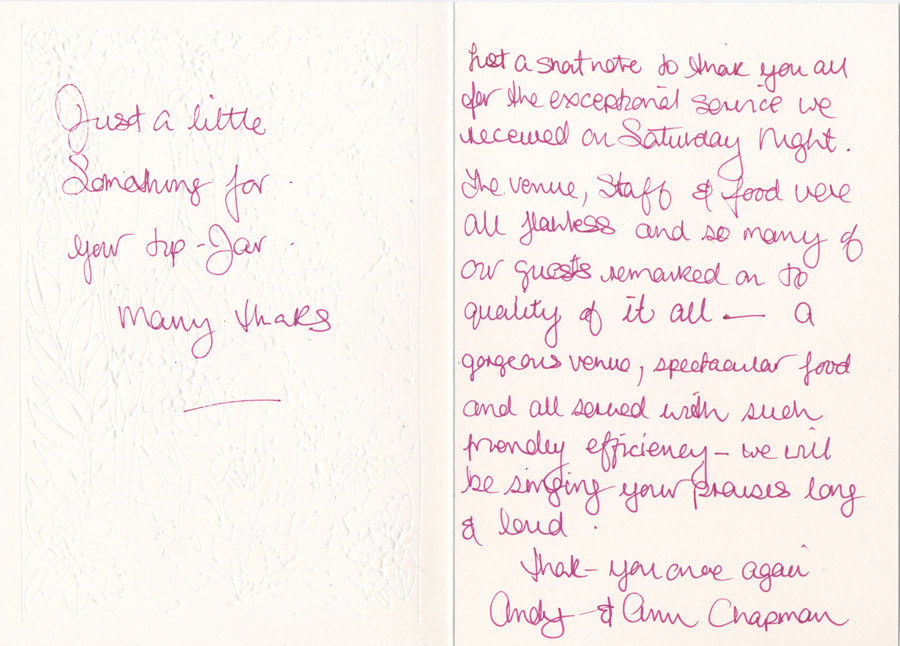 Just a little
Something for
your tip-Jar.
Many thanks
Just a short note to thank you all
for the exceptional service we
received on Saturday Night.
The venue, Staff & food were
all flawless and so many of
our guests remarked on to
quality of it all — a
gorgeous venue, spectacular food
and all served with such
friendly efficiency - we will
be singing your praises long
& loud.
Thank-you once again
Andy & Ann Chapman